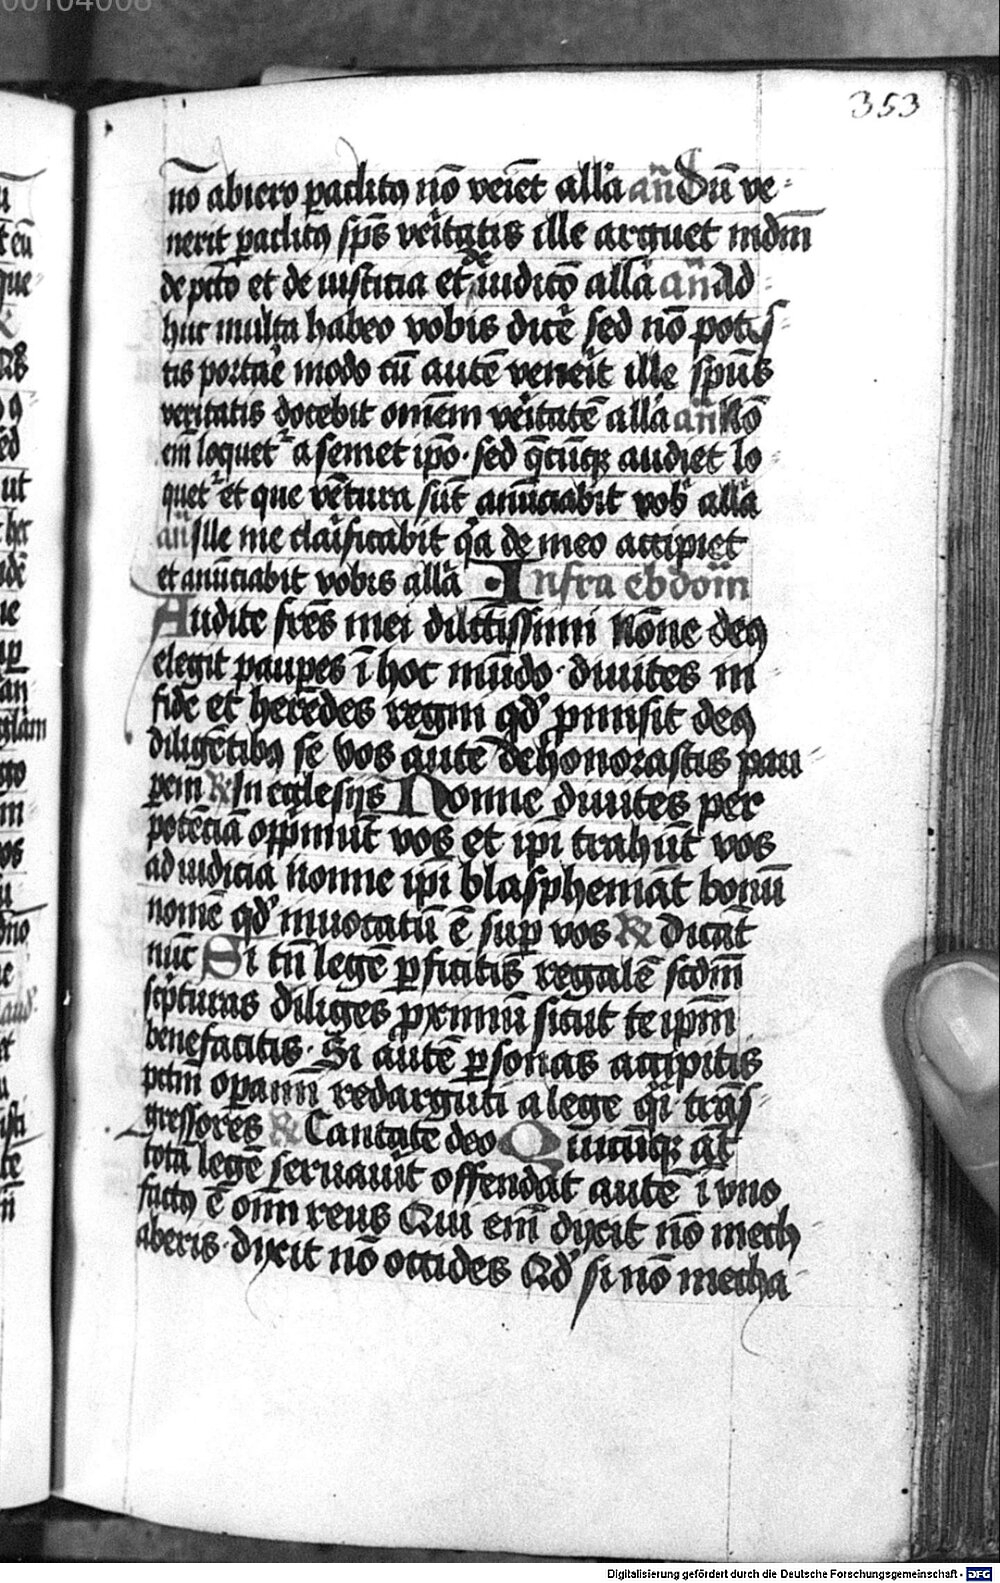 00104008
353
nō abiero paclitꝰ nō veīet allā an̄ Dū ve-
nerit paclitꝰ sp̄s veritatis ille arguet mūdm̄
de pctō et de iusticia et de iudicō allā an̄ Ad
huc multa habeo vobis dicē sed nō potes-
tis portāe modo cū autē venerit ille spūs
veritatis docebit omēm veritatē allā an̄ Nō
em̄ loquet᷑ a semet ip̄o · sed q̄cūqꝫ audiet lo-
quet᷑ et que vētura sūt anūciabit vob᷒ allā
an̄ Ille me claīficabit qꝛ de meo accipiet
et anūciabit vobis allā · Infra ebdom̄
Audite frēs mei dilcētissimi Nōne deꝰ
elegit paupes ī hoc mūdo · diuites in
fide et herēdes regni qd᷒ pmisit deꝰ
diligētibꝰ se vos autē dehonorastis pau-
perem ℟ In ecclesijs Nonne diuites per
potēciā opp̄mūt vos et ip̄i trahūt vos
ad iudicia nonne ip̄i blasphemāt bonū
nomē qd᷒ inuocatū ē sup vos ℟ dicāt
nūc Si tn̄ legē ꝑficitis regalē scdm̄
sc̄pturas diliges ꝓximū sicut te ipm̄
benefacitis · Si autē ꝑsonas accipitis
pctm̄ opamī redarguti a lege q̄i trās-
gressores ℟ Cantate deo Quicūqꝫ āt
totā legē seruauīt offendat autē ī vno
factꝰ ē oīm reus Qui em̄ dixit nō mech-
aberis · dixit nō occides Qd᷒ si nō mecha-
Digitalisierung gefördert durch die Deutsche Forschungsgemeinschaft - DFG